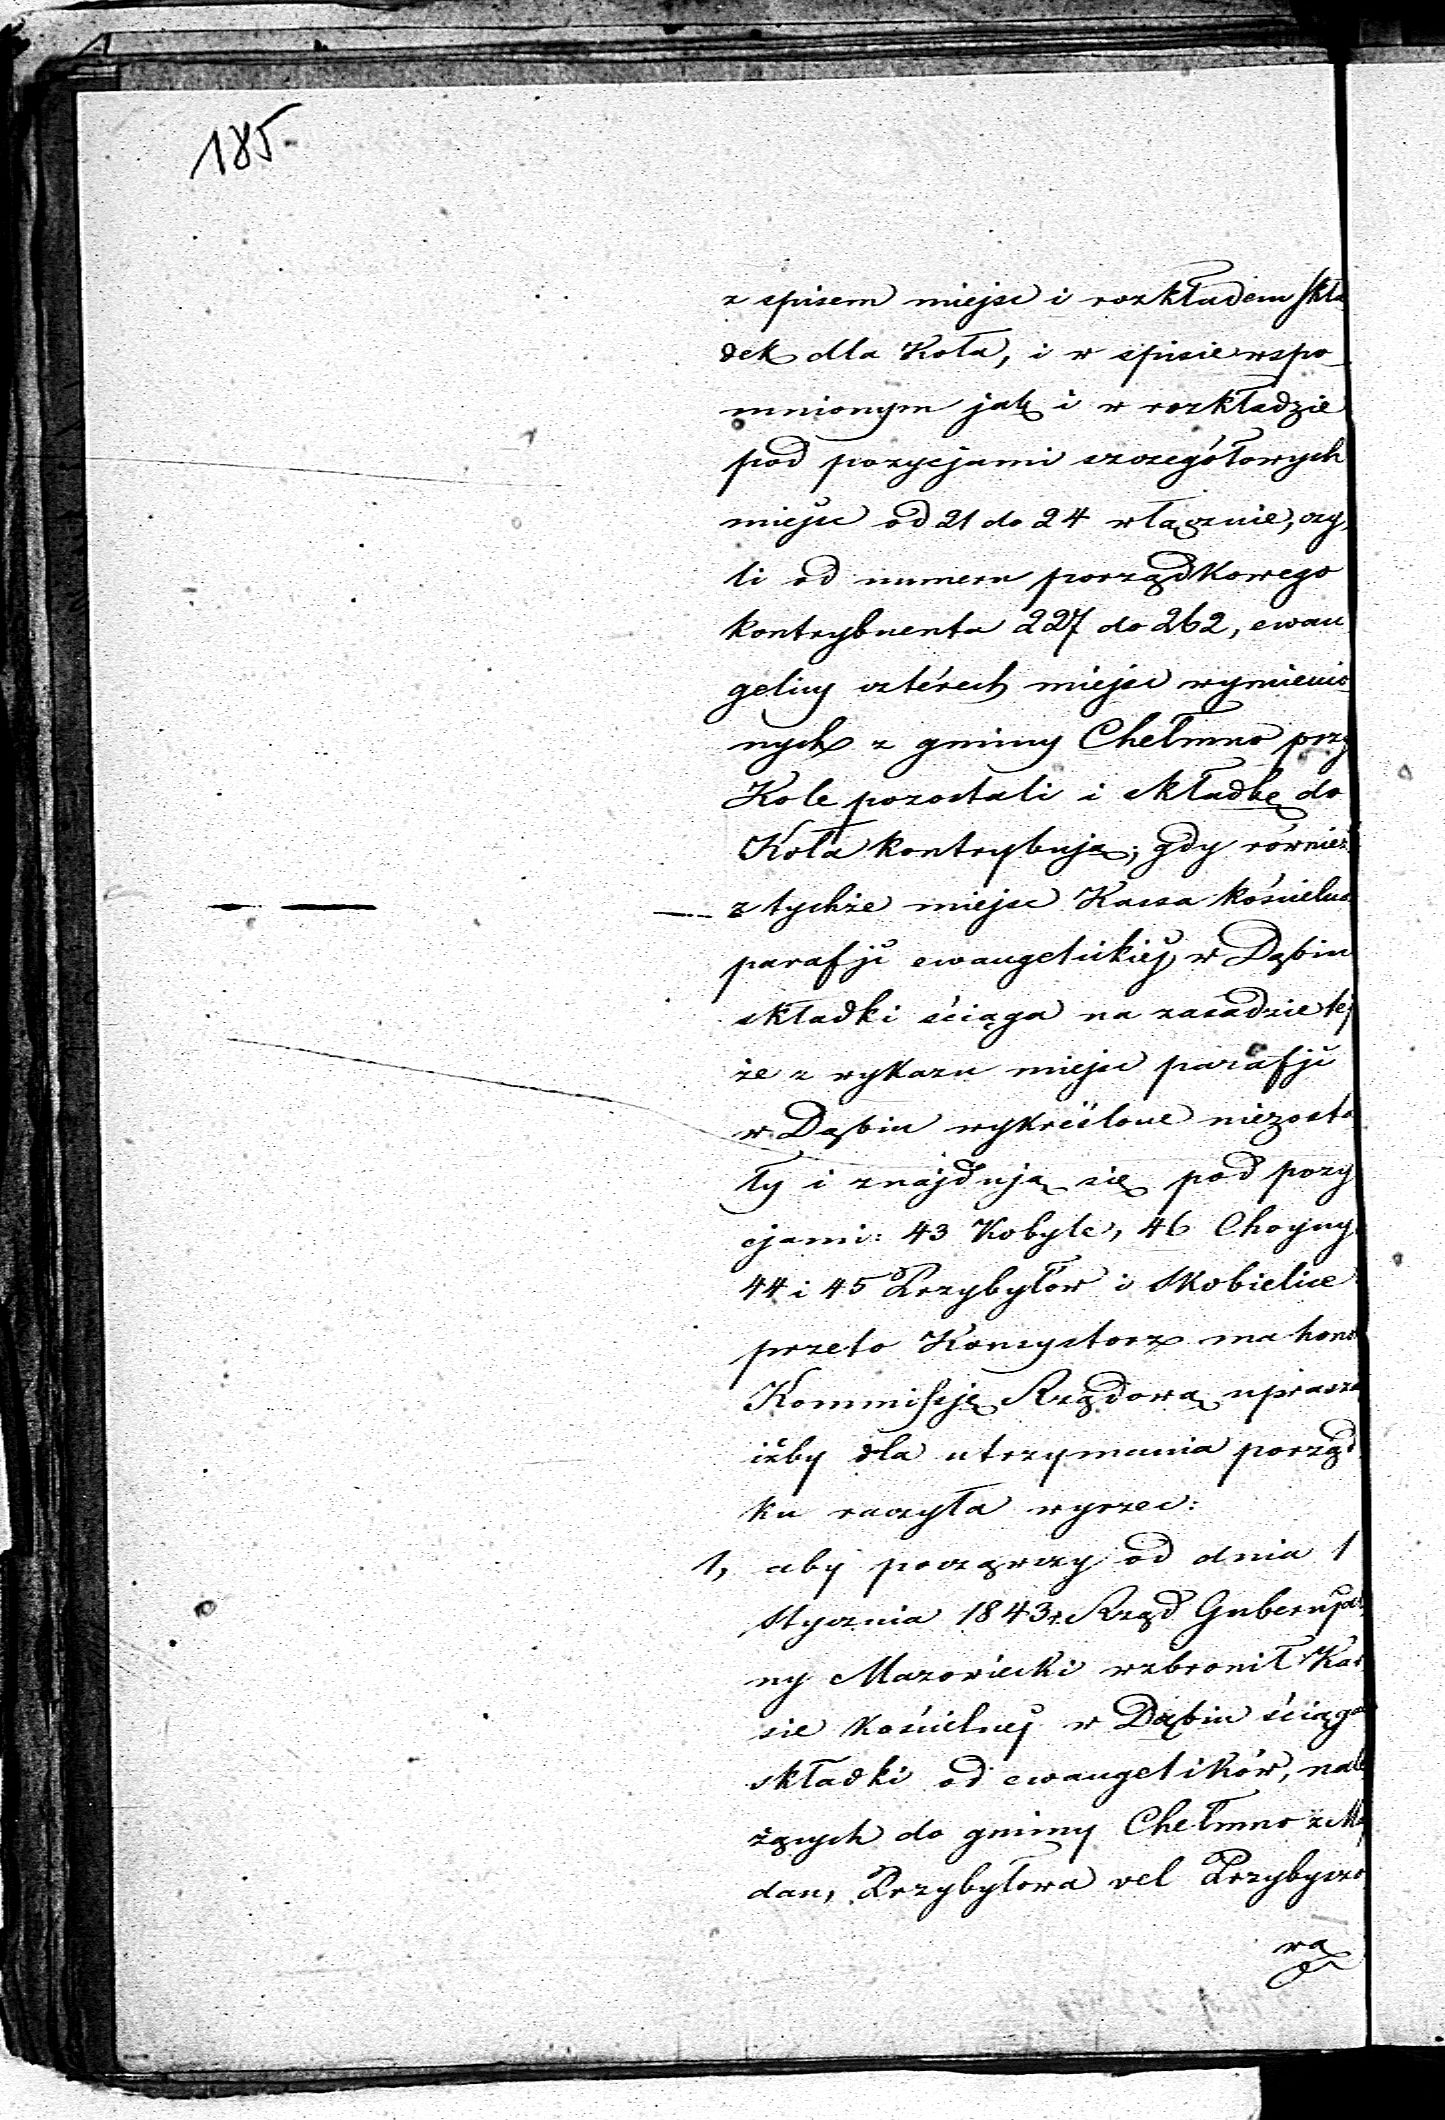 185.
z spisem miejsc i rozkładem skła
dek dla Koła, i w spisie wspo-
mnionym jak i w rozkładzie
pod pozycjami szczegółowych
miejsc od 21 do 24 włącznie, czy-
li od numeru porządkowego
kontrybuenta 227 do 262, ewan
gelicy czterech miejsc wymienio
nych z gminy Chełmno przy
Kole pozostali i składkę do
Koła kontrybują; gdy również
z tychże miejsc Kassa kościelna
parafji ewangelickiej w Dąbiu
składki ściąga na zasadzie tej
że z wykazu miejsc parafji
w Dąbiu wykreślone niezosta
ły i znajdują się pod pozy
cjami: 43 Kobyle, 46 Choyny
44 i 45 Przybyłów i Skobielice
przeto Konsystorz ma hono
Kommissję Rządową uprasza
iżby dla utrzymania porząd
ku raczyła wyrzec:
1, aby począwszy od dnia 1
Stycznia 1843 r. Rząd Gubernjal
ny Mazowiecki wzbronił Kas
sie Kościelnej w Dąbiu ściąga
składki od ewangelików, nale
żących do gminy Chełmno z Maj
dan, Przybyłowa vel Przybyszo
wa